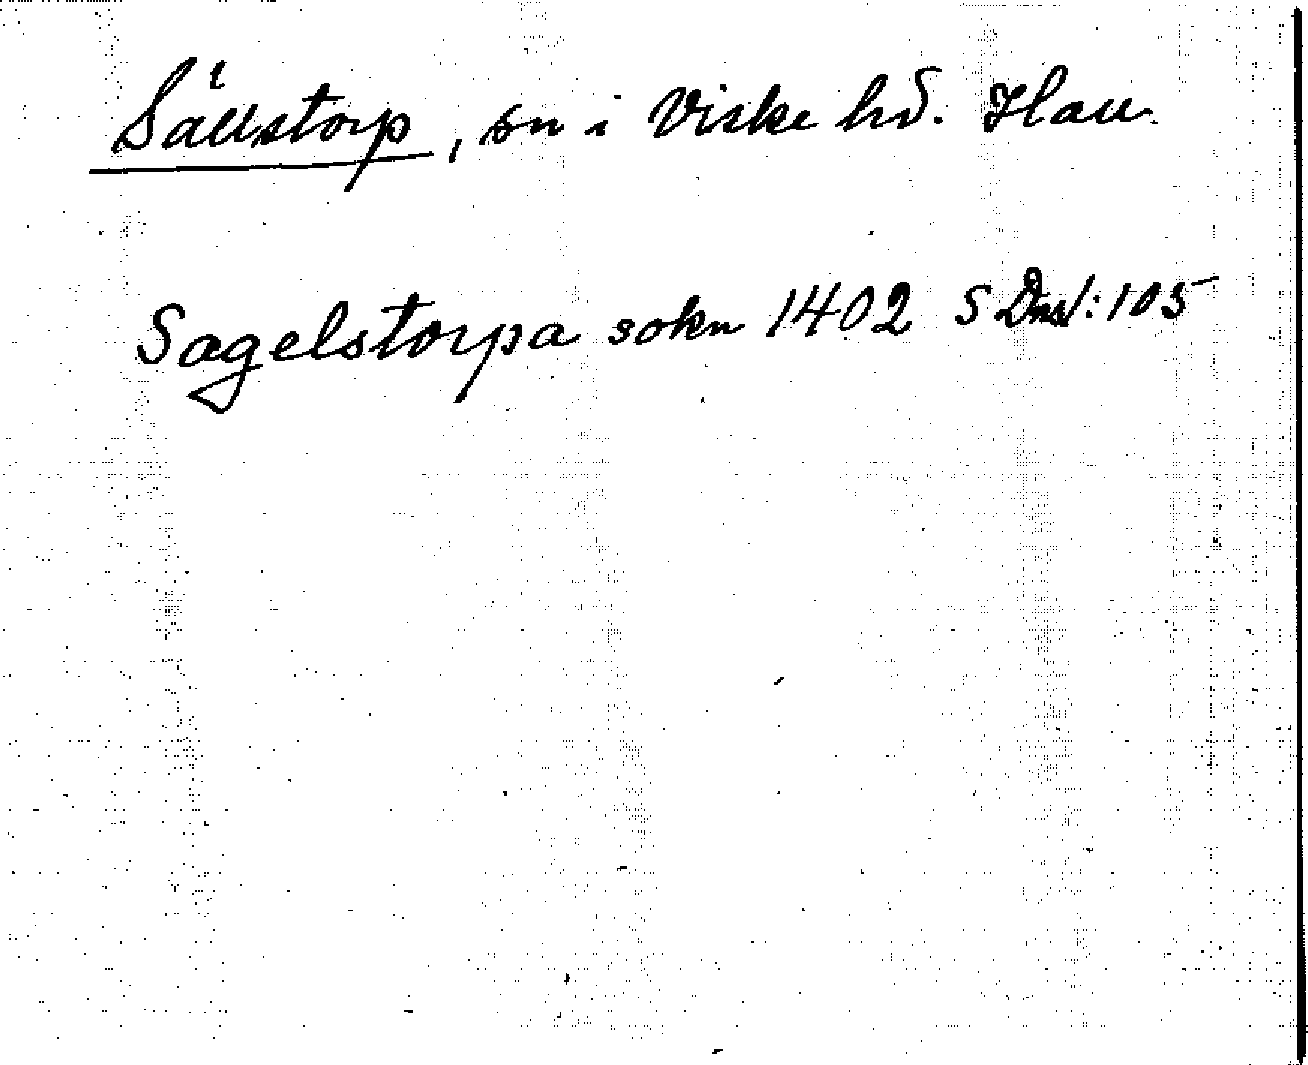 Sällstorp, sn i Viske hd. Hall.
Sagelstorpa sokn 1402 S Dns1:105